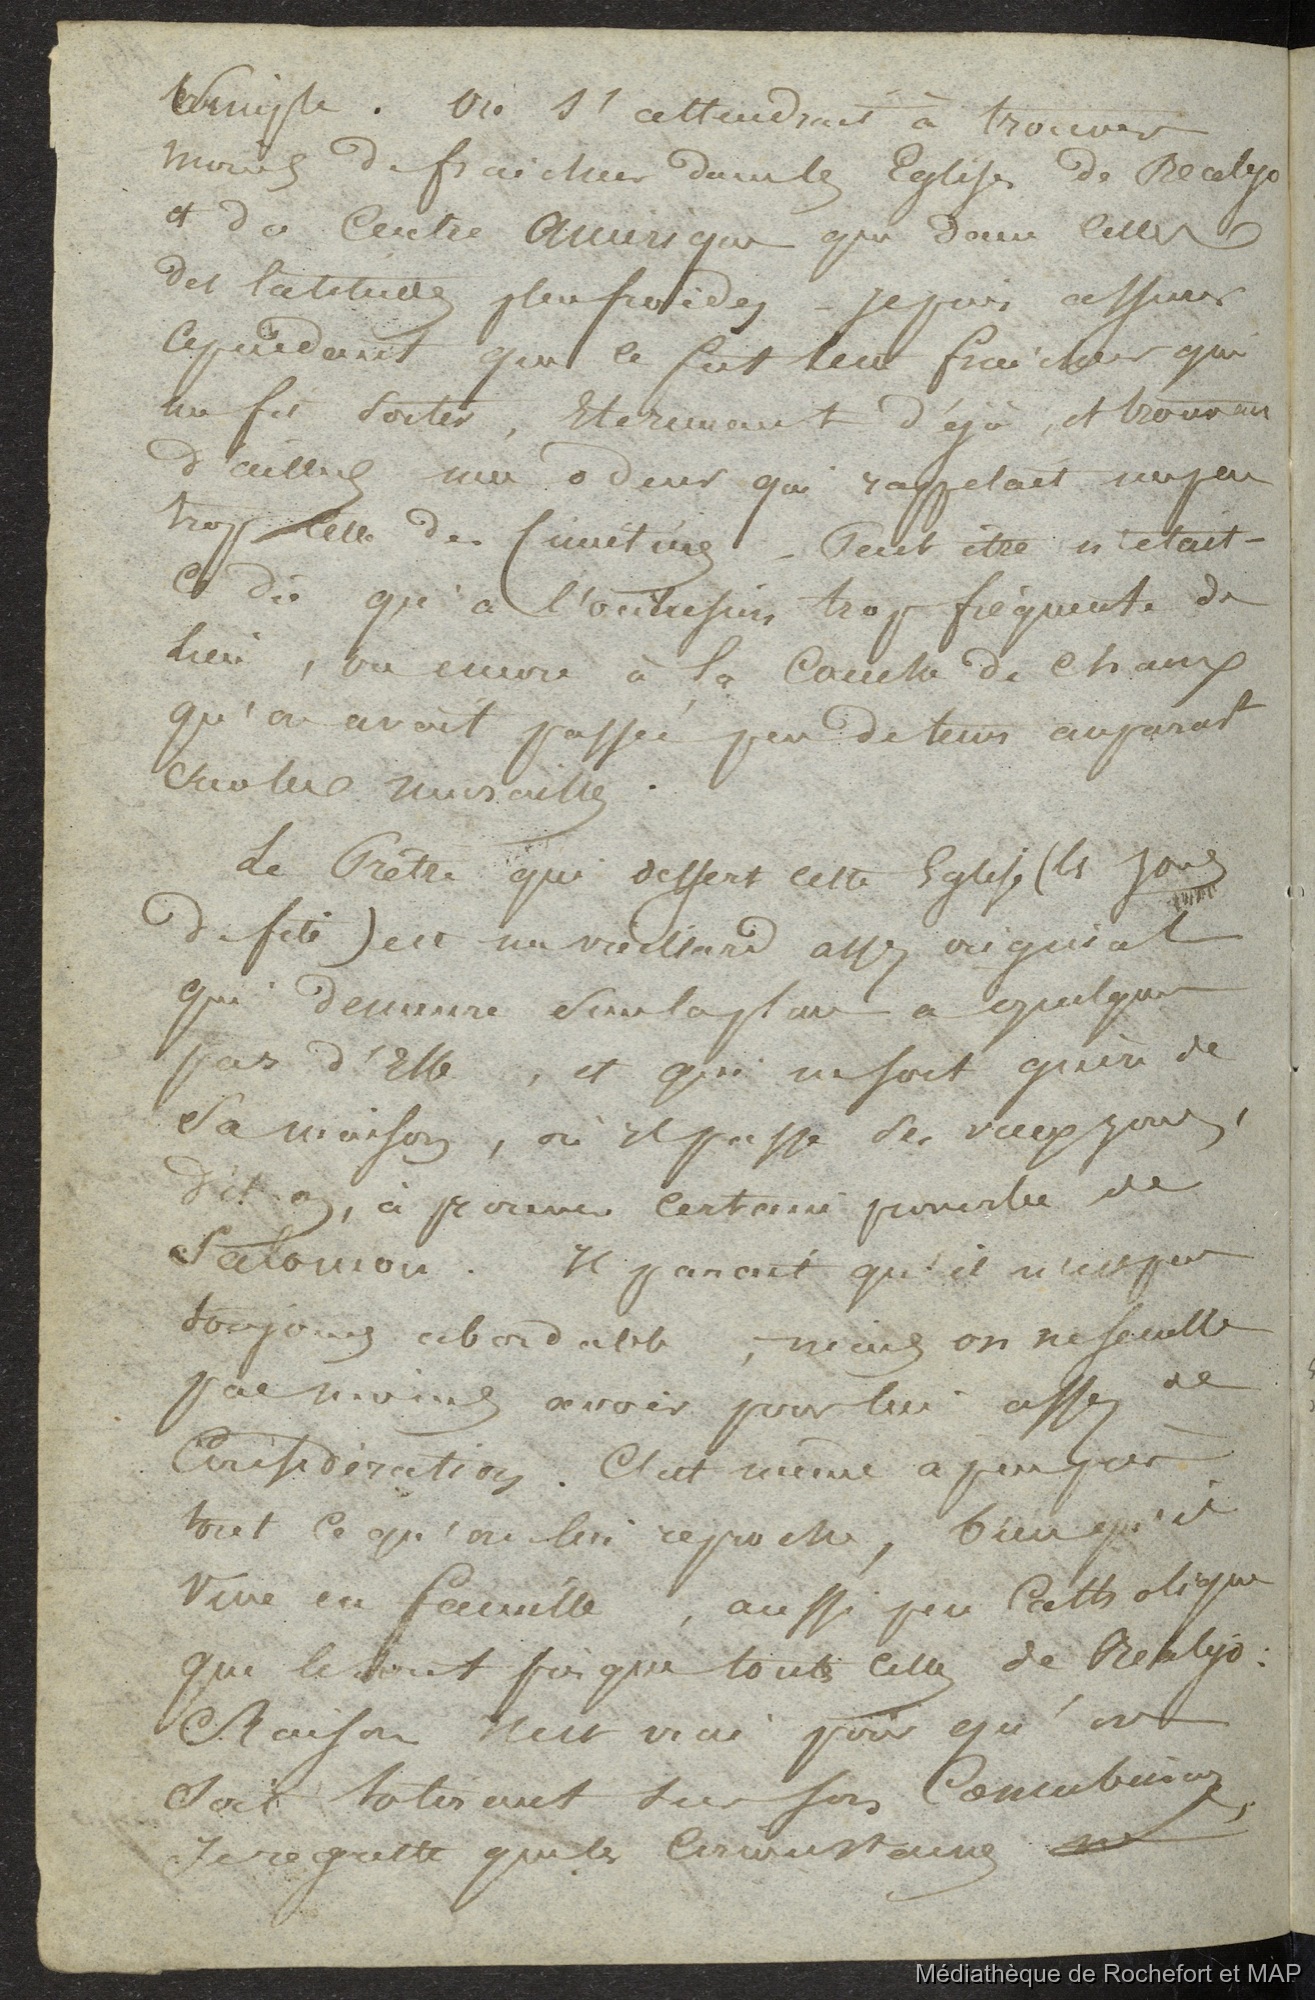 . On s'attendrait à trouver
moins de fraicheur dans les Eglises de Realejo
et du Centre Amérique que dans celles
des latitudes plus froides _ je puis assurer
cependant que ce fut leur fraicheur qui
me fit sortir, éternuant déjà, et trouvant
d'ailleurs une odeur qui rappelait un peu
trop celle des Cimetières _ Peut être n'était-
ce dû qu'à l' trop fréquente du
lieu, ou encore à la couche de chaux
qu'on avait passée peu de tems auparavt
sur les murailles.
Le Prêtre qui dessert cette Eglise (les jours
de fête) est un vieillard assez original
qui demeure sur la place a quelques
pas d'Elle, et qui ne sort guère de
sa maison, où il passe ses vieux jours,
dit on, à prouver certain proverbe de
Salomon. Il parait qu'il n'est pas
toujours abordable, mais on ne semble
pas moins avoir pour lui assez de
Considération. C'est même à peu près
tout ce qu'on lui reproche, bien qu'il
vive en famille, aussi peu Catholique
que le sont presque toutes celles de Realejo :
Raison il est vrai pour qu'on
soit tolérant sur son Concubinage,
Je regrette que les Circonstances ne
Médiathèque de Rochefort et MAP